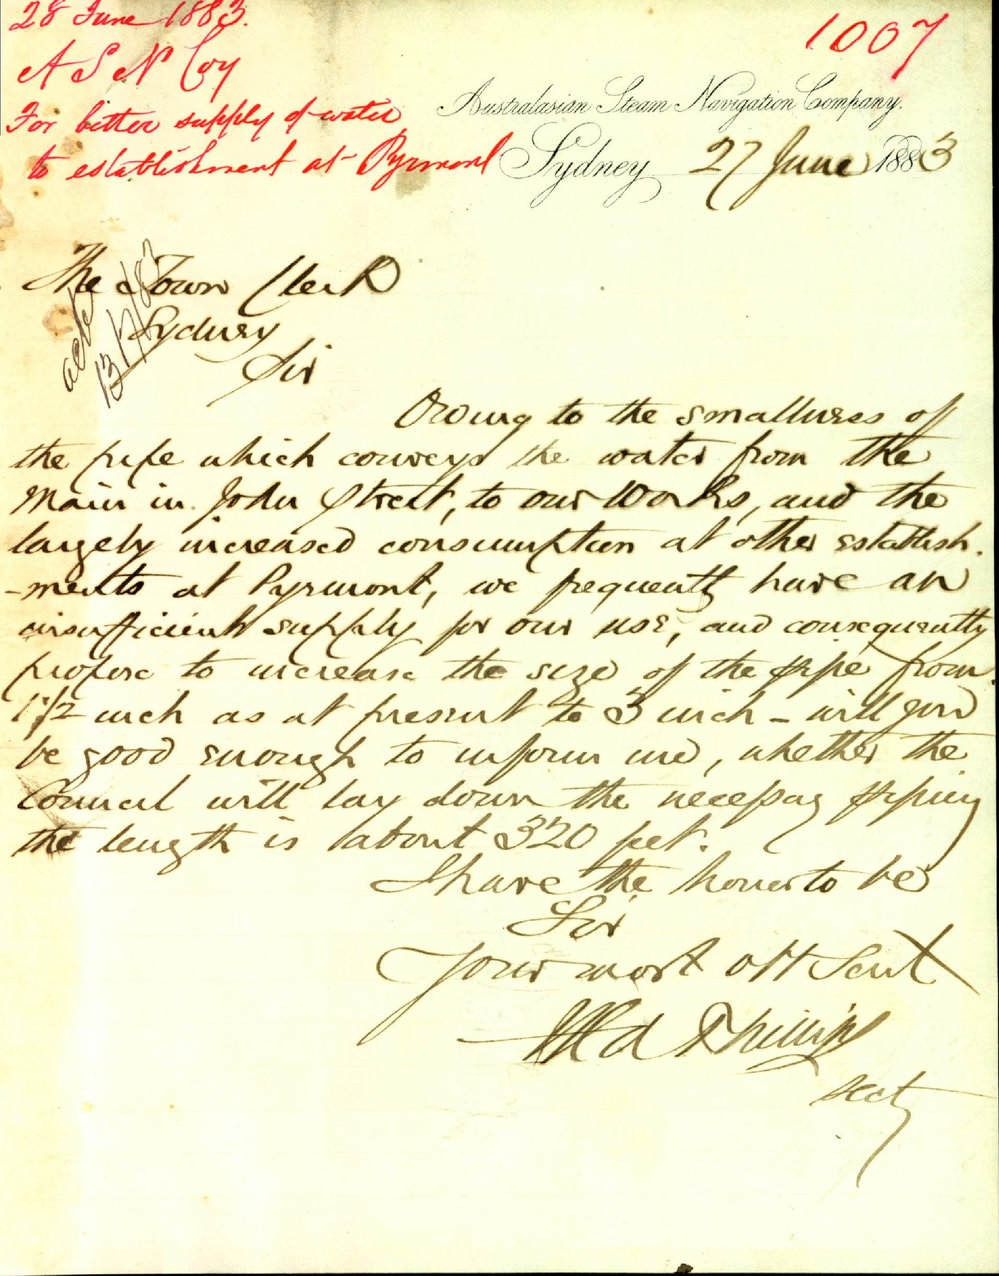 28 June 1883.
1007
A S N Coy
For better supply of water
to establishment at Pyrmont
Australasian Steam Navigation Company.
Sydney 27 June 1883
The Town Clerk
Sydney
ackd
13/7/83
Sir
Owing to the smallness of
the pipe which conveys the water from the
Main in John Street, to our Works, and the
largely increased consumption at other establish-
-ments at Pyrmont, we frequently have an
insufficient supply for our use, and consequently
propose to increase the size of the pipe from
1 1/2 inch as at present to 3 inch - will you
be good enough to inform me, whether the
Council will lay down the necessary piping
the length is about 320 feet.
I have the honor to be
Sir
Your most obt Servt
Phillips
secty